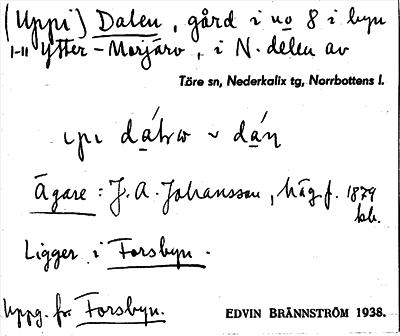 (Uppi) Dalen, gård i no 8 i byn
I-II Ytter-Morjärv, i N. delen av
Töre sn, Nederkalix tg, Norrbottens l.
Ägare: J. A. Johansson, häg. f. 1879
kb.
Ligger i Forsbyn.
Uppg. fr. Forsbyn.
EDVIN BRÄNNSTRÖM 1938.